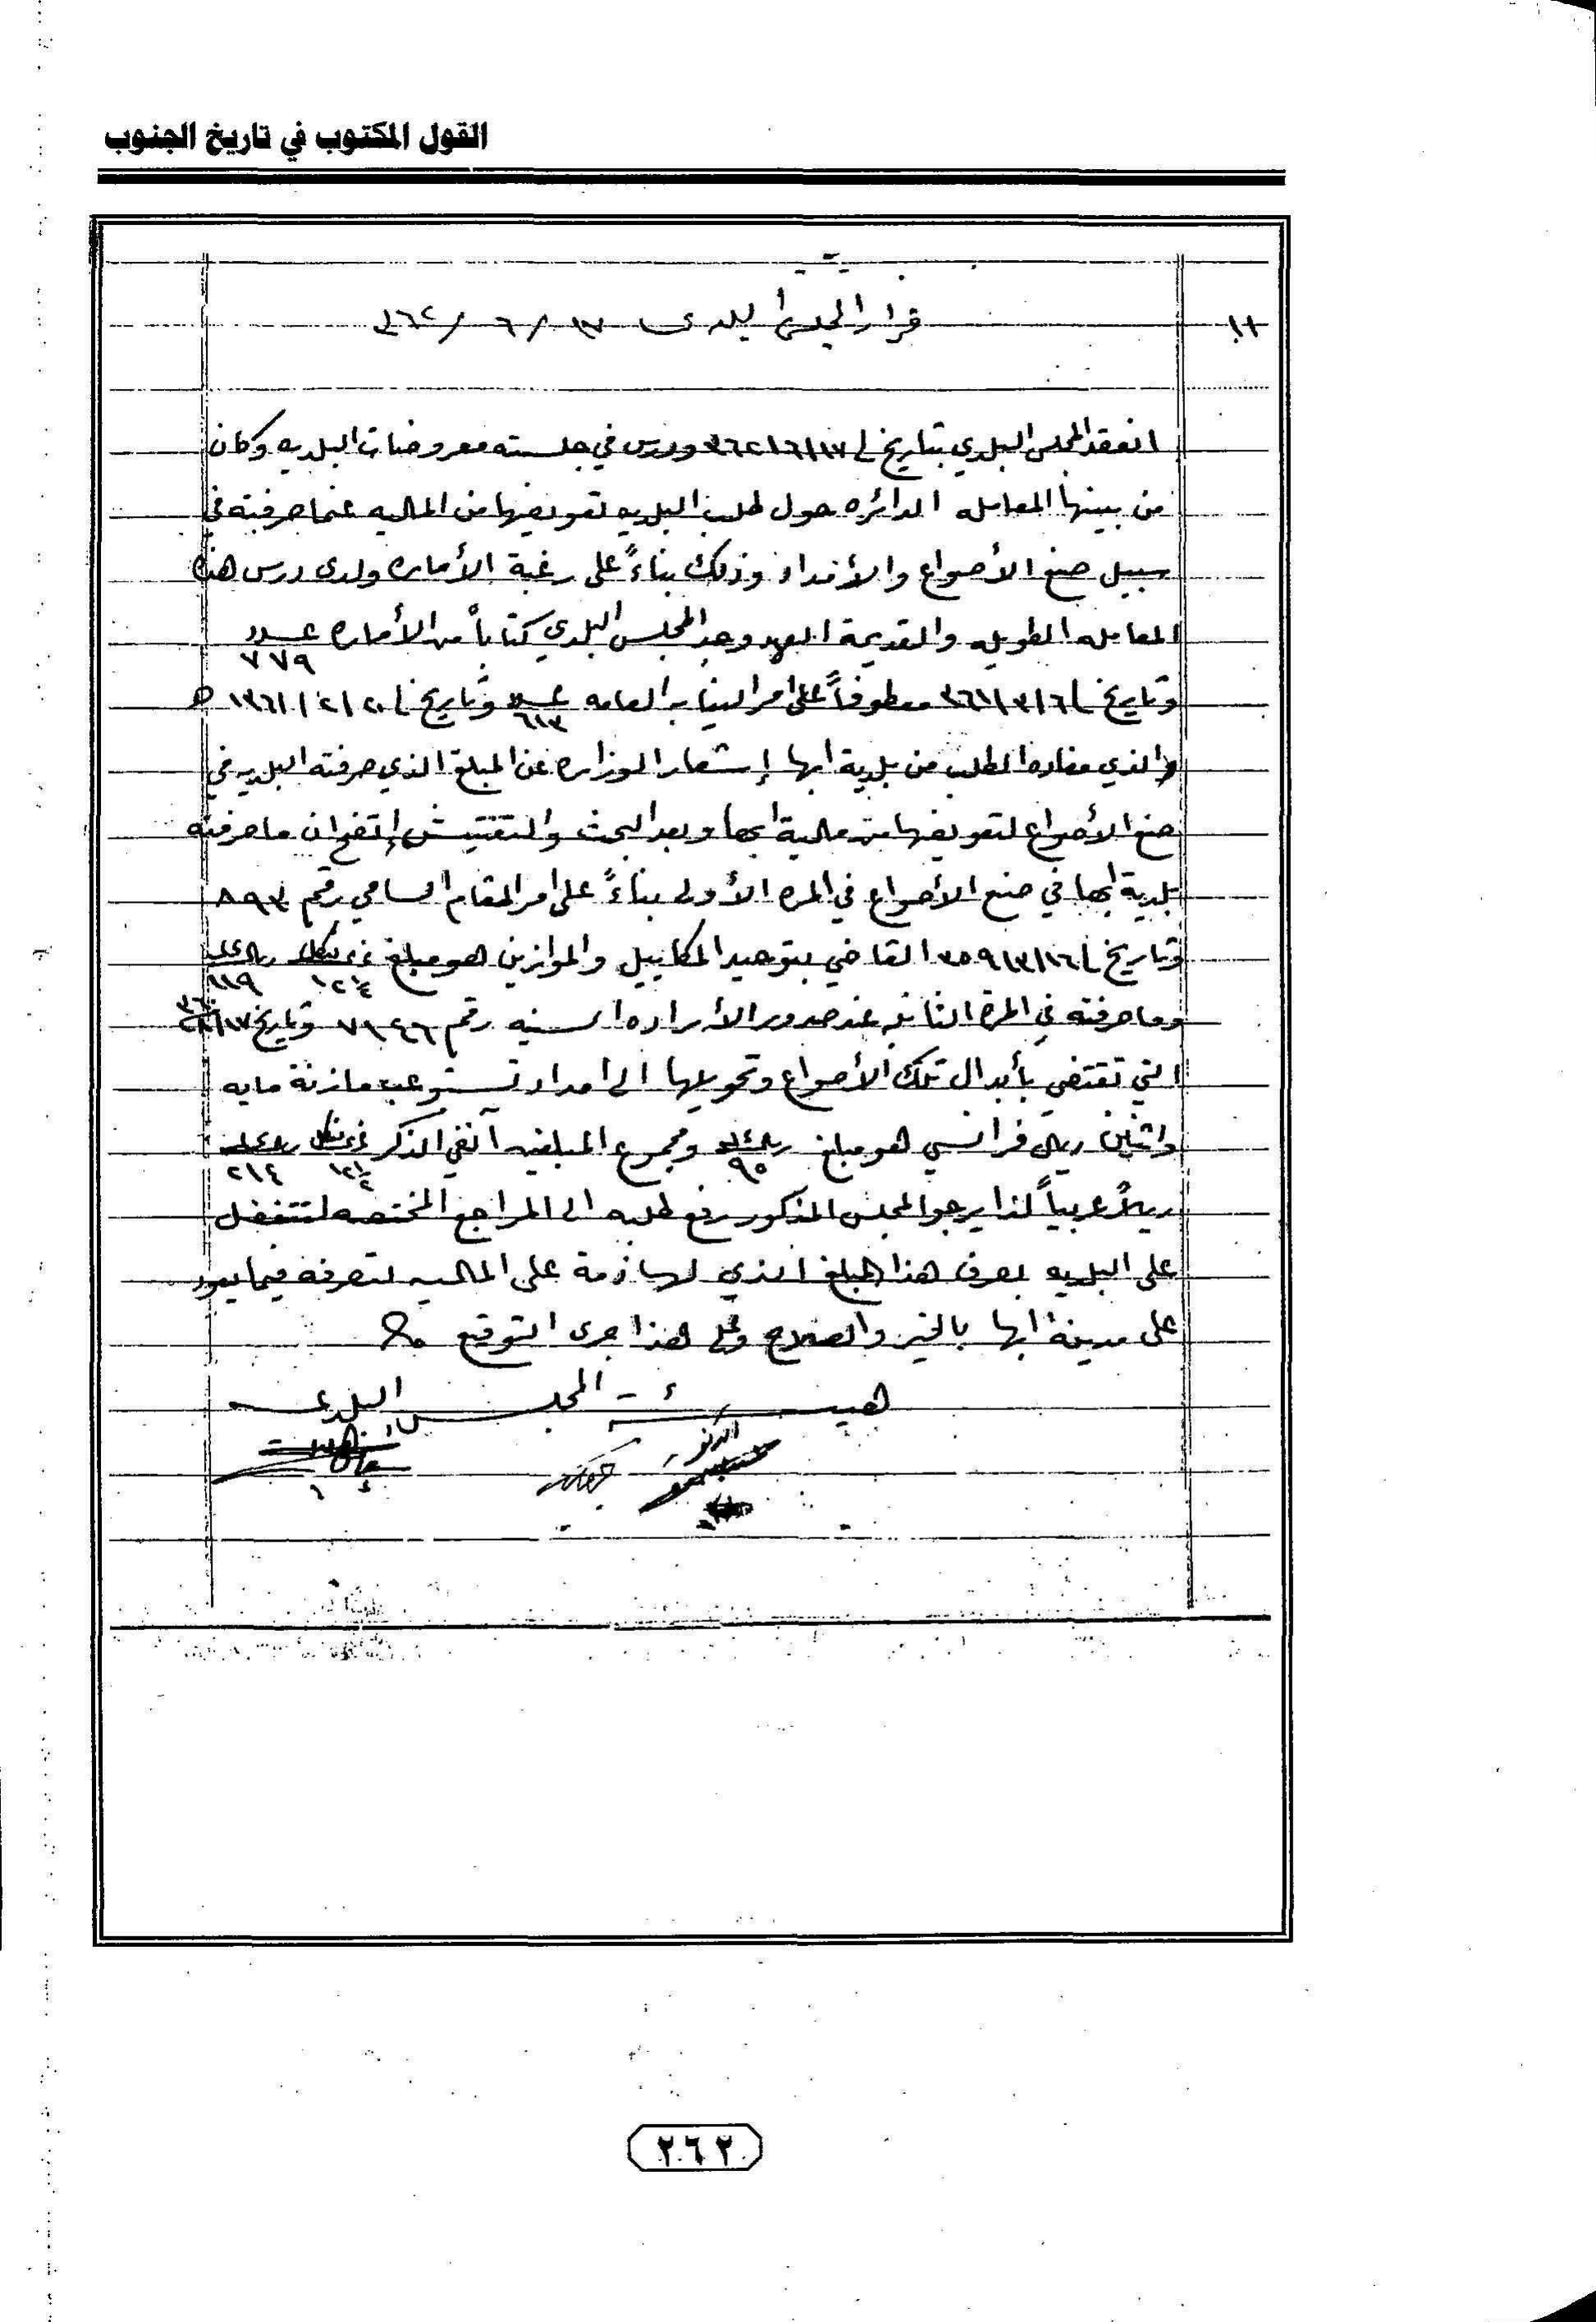 القول المكتوب في تاريخ الجنوب
قرار المجلس البلدي ١٧/ ٦/ ٣٦٢
انعقد المجلس البلدي بتاريخ ١٧/٦/٣٦٢ ودرس في جلسته معروضات البلديه وكان
من بينها المعامله الدائره حول طلب البلديه تعويضها من الماليه عما صرفته في
سبيل صنع الأصواع والأمداد وذلك بناءً على رغبة الأماره ولدى درس هذه
المعامله الطويله والقديمة العهد وجد المجلس البلدي كتاباً من الأماره عدد ٧٧٩
وتاريخ ٦/٣/٣٦١ معطوفاً على أمر النيابه العامه عدد ٦١٣ وتاريخ ٢٠/٢/١٣٦١ ه
والذي مفاده الطلب من بلدية ابها إشعار الوزاره عن المبلغ الذي صرفته البلديه في
صنع الأصواع لتعويضها من مالية ابها وبعد البحث والتفتيش إتضح ان ما صرفته
بلدية ابها في صنع الأصواع في المره الأولى بناءً على امر المقام السامي رقم ٨٩٣
وتاريخ ١٦/٣/٣٥٩ القاضي بتوحيد المكاييل والموازين هو مبلغ ١١٩
وما صرفته في المرة الثانيه عند صدور الأراده السنيه رقم ٧١٤٦ وتاريخ
التي تقتضي بأبدال تلك الأصواع وتحويلها الى امداد تستوعب مازنة مايه
واثنين ريال فرانسي هو مبلغ ٩٥ ومجموع المبلغين آنفي الذكر ٢١٤
ريالاً عربياً لذا يرجو المجلس المذكور رفع طلبه الى المراجع المختصه لتتفضل
على البلديه بصرف هذا المبلغ الذي لها ذمة على الماليه لتصرفه فيما يعود
على مدينة ابها بالخير والصلاح وعلى هذا جرى التوقيع
هيئة المجلس البلدي
٢٦٢